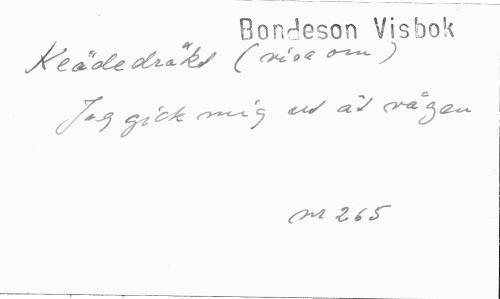 Bondeson Visbok
Keädedräkt (visa om)
Jag gick mig ut åt vägen
nr 265